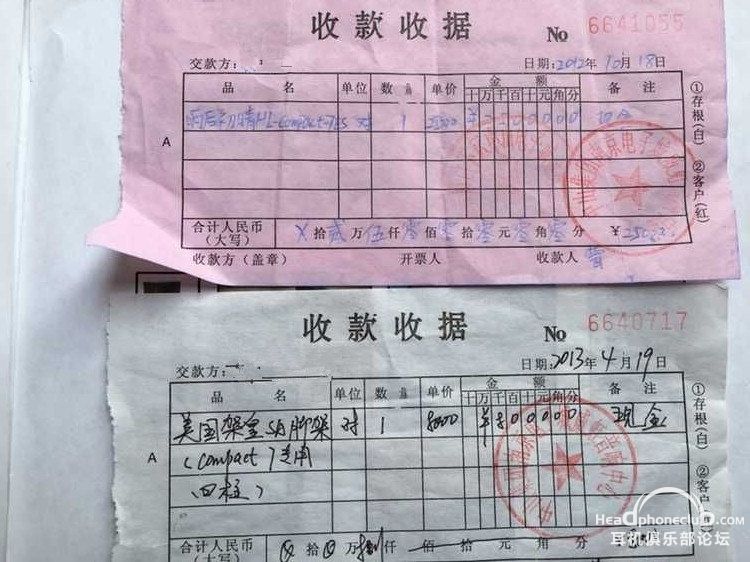 收款收据 No 6641055
交款方: 日期:2012年10月18日
品名 单位 数量 单价 金额 备注
十万千百十元角分
雨后初晴HL-Compact-7ES 对 1
A
合计人民币 X拾贰万伍仟零佰零拾零元零角零分 ¥
(大写)
收款方(盖章) 开票人 收款人
①存根(白) ②客户(红)
收款收据 No 6640717
交款方: 日期:2013年4月19日
品名 单位 数量 单价 金额 备注
十万千百十元角分
美国架皇SA脚架 对 1 8000 ¥800000 现金
A (Compact)专用
(四柱)
合计人民币 拾 万 捌仟 佰 拾 元 角 分
(大写)
①存根(白) ②客户
Headphoneclub.com
耳机俱乐部论坛